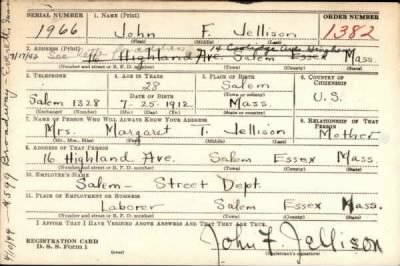 SERIAL NUMBER 1. NAME (Print) ORDER NUMBER
1966 John F. Jellison 1382
(First) (Middle) (Last)
2. ADDRESS (Print) 14 Coolidge Ave
16 Highland Ave. Salem Essex Mass.
(Number and street or R. F. D. number) (Town) (County) (State)
3. TELEPHONE 4. AGE IN YEARS 5. PLACE OF BIRTH 6. COUNTRY OF CITIZENSHIP
28 Salem
DATE OF BIRTH (Town or county)
Salem 1328 7-25-1912 Mass. U.S.
(Exchange) (Number) (Mo.) (Day) (Yr.) (State or country)
7. NAME OF PERSON WHO WILL ALWAYS KNOW YOUR ADDRESS 8. RELATIONSHIP OF THAT PERSON
Mrs. Margaret T. Jellison Mother
(Mr., Mrs., Miss) (First) (Middle) (Last)
9. ADDRESS OF THAT PERSON
16 Highland Ave. Salem Essex Mass.
(Number and street or R. F. D. number) (Town) (County) (State)
10. EMPLOYER'S NAME
Salem - Street Dept.
11. PLACE OF EMPLOYMENT OR BUSINESS
Laborer Salem Essex Mass.
(Number and street or R. F. D. number) (Town) (County) (State)
I AFFIRM THAT I HAVE VERIFIED ABOVE ANSWERS AND THAT THEY ARE TRUE.
REGISTRATION CARD
D. S. S. Form 1 (over) John F. Jellison
(Registrant's signature)
599 Broadway Everett, Mass